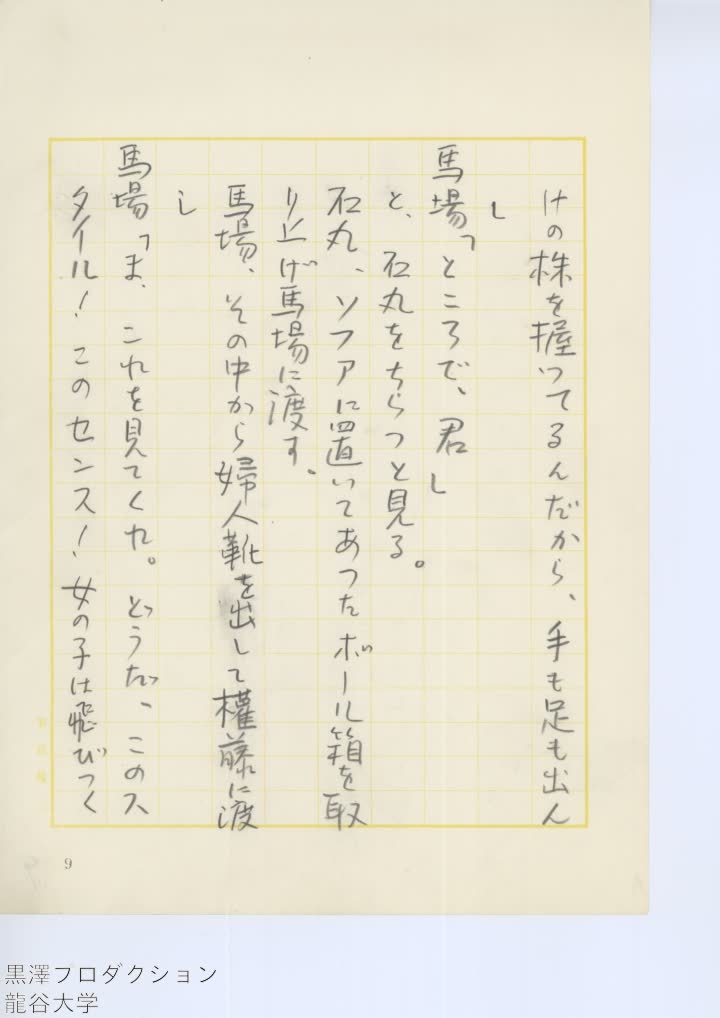 けの株を握つてるんだから、手も足も出ん
」
馬場「ところで、君」
と、石丸をちらつと見る。
石丸、ソファに置いてあつたボール箱を取
り上げ馬場に渡す。
馬場、その中から婦人靴を出して権藤に渡
し
馬場「ま、これを見てくれ。どうだ、このス
タイル！このセンス！女の子は飛びつく
9
黒澤プロダクション
龍谷大学